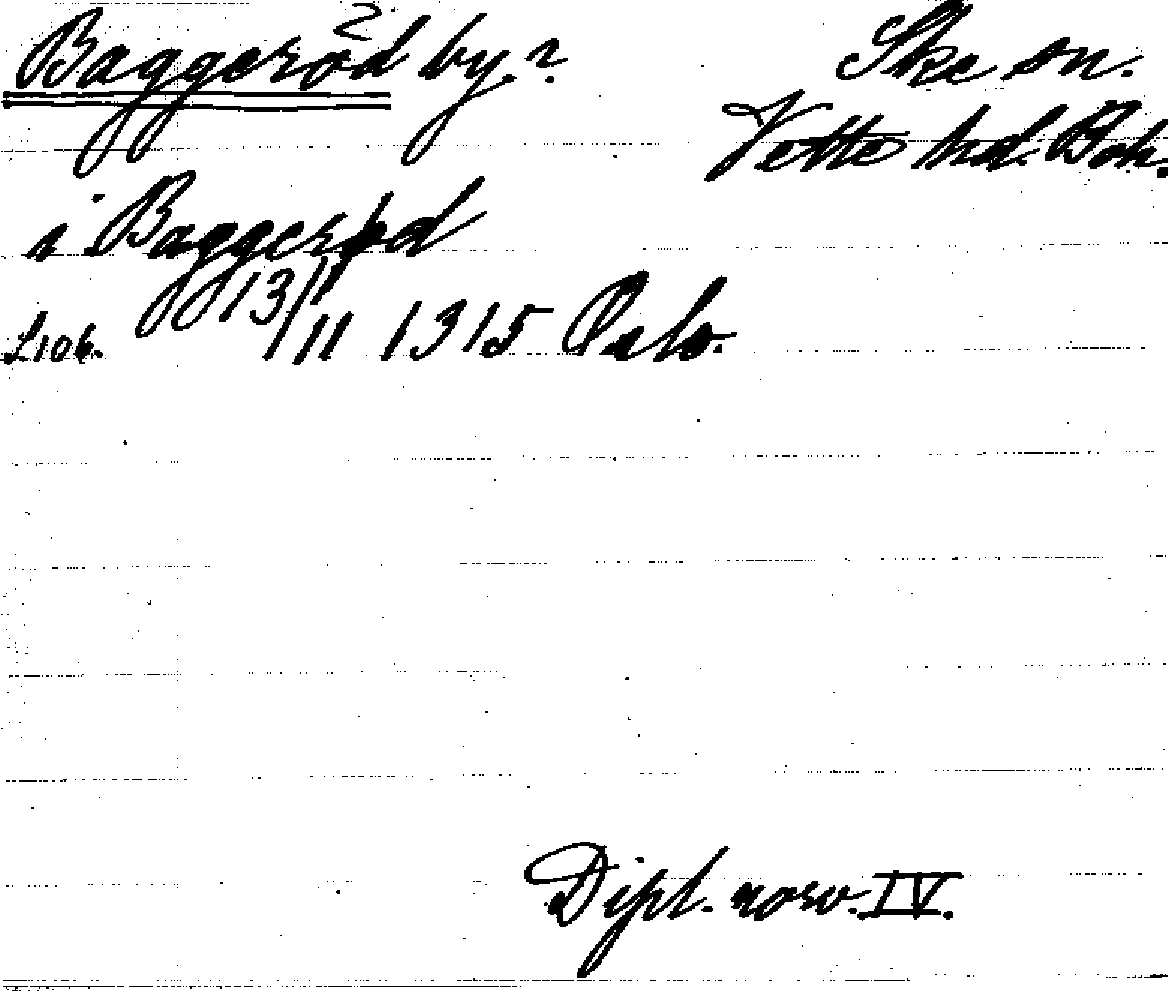 Baggeröd by.?
Ske sn.
Vette hd. Boh.
i Baggerød
s. 106. 13/11 1315 Oslo.
Dipl. norv. IV.